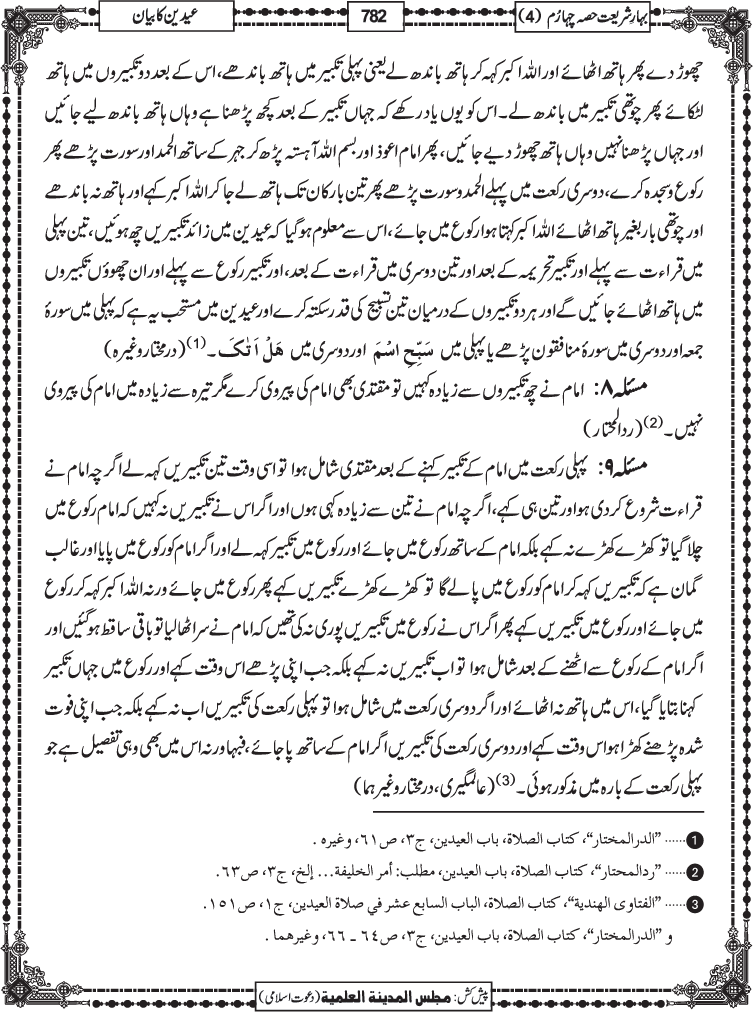 بہارِ شریعت حصہ چہارم (4)
782
عیدین کا بیان
چھوڑ دے پھر ہاتھ اٹھائے اور اللہ اکبر کہہ کر ہاتھ باندھ لے یعنی پہلی تکبیر میں ہاتھ باندھے، اس کے بعد دو تکبیروں میں ہاتھ
لٹکائے پھر چوتھی تکبیر میں باندھ لے۔ اس کو یوں یاد رکھے کہ جہاں تکبیر کے بعد کچھ پڑھنا ہے وہاں ہاتھ باندھ لیے جائیں
اور جہاں پڑھنا نہیں وہاں ہاتھ چھوڑ دیے جائیں، پھر امام اعوذ اور بسم اللہ آہستہ پڑھ کر جہر کے ساتھ الحمد اور سورت پڑھے پھر
رکوع و سجدہ کرے، دوسری رکعت میں پہلے الحمد و سورت پڑھے پھر تین بار کان تک ہاتھ لے جا کر اللہ اکبر کہے اور ہاتھ نہ باندھے
اور چوتھی بار بغیر ہاتھ اٹھائے اللہ اکبر کہتا ہوا رکوع میں جائے، اس سے معلوم ہو گیا کہ عیدین میں زائد تکبیریں چھ ہوئیں، تین پہلی
میں قراءت سے پہلے اور تکبیر تحریمہ کے بعد اور تین دوسری میں قراءت کے بعد، اور تکبیر رکوع سے پہلے اور ان چھوؤں تکبیروں
میں ہاتھ اٹھائے جائیں گے اور ہر دو تکبیروں کے درمیان تین تسبیح کی قدر سکتہ کرے اور عیدین میں مستحب یہ ہے کہ پہلی میں سورۂ
جمعہ اور دوسری میں سورۂ منافقون پڑھے یا پہلی میں سَبِّحِ اسْمَ اور دوسری میں هَلْ اَتٰىکَ ۔(1) (درمختار وغیرہ)
مسئلہ ۸: امام نے چھ تکبیروں سے زیادہ کہیں تو مقتدی بھی امام کی پیروی کرے مگر تیرہ سے زیادہ میں امام کی پیروی
نہیں۔(2) (ردالمحتار)
مسئلہ ۹: پہلی رکعت میں امام کے تکبیر کہنے کے بعد مقتدی شامل ہوا تو اسی وقت تین تکبیریں کہہ لے اگرچہ امام نے
قراءت شروع کر دی ہو اور تین ہی کہے، اگرچہ امام نے تین سے زیادہ کہی ہوں اور اگر اس نے تکبیریں نہ کہیں کہ امام رکوع میں
چلا گیا تو کھڑے کھڑے نہ کہے بلکہ امام کے ساتھ رکوع میں جائے اور رکوع میں تکبیر کہہ لے اور اگر امام کو رکوع میں پایا اور غالب
گمان ہے کہ تکبیریں کہہ کر امام کو رکوع میں پالے گا تو کھڑے کھڑے تکبیریں کہے پھر رکوع میں جائے ورنہ اللہ اکبر کہہ کر رکوع
میں جائے اور رکوع میں تکبیریں کہے پھر اگر اس نے رکوع میں تکبیریں پوری نہ کی تھیں کہ امام نے سر اٹھا لیا تو باقی ساقط ہو گئیں اور
اگر امام کے رکوع سے اٹھنے کے بعد شامل ہوا تو اب تکبیریں نہ کہے بلکہ جب اپنی پڑھے اس وقت کہے اور رکوع میں جہاں تکبیر
کہنا بتایا گیا، اس میں ہاتھ نہ اٹھائے اور اگر دوسری رکعت میں شامل ہوا تو پہلی رکعت کی تکبیریں اب نہ کہے بلکہ جب اپنی فوت
شدہ پڑھنے کھڑا ہو اس وقت کہے اور دوسری رکعت کی تکبیریں اگر امام کے ساتھ پا جائے، فبہا ورنہ اس میں بھی وہی تفصیل ہے جو
پہلی رکعت کے بارہ میں مذکور ہوئی۔(3) (عالمگیری، درمختار وغیرہما)
1 ...... ”الدرالمختار“، کتاب الصلاة، باب العیدین، ج۳، ص٦١، وغیره .
2 ...... ”ردالمحتار“، کتاب الصلاة، باب العیدین، مطلب: أمر الخلیفة... إلخ، ج۳، ص٦٣.
3 ...... ”الفتاوی الهندیة“، کتاب الصلاة، الباب السابع عشر في صلاة العیدین، ج١، ص١٥١.
و ”الدرالمختار“، کتاب الصلاة، باب العیدین، ج۳، ص٦٤ ـ ٦٦، وغیرهما .
پیش کش: مجلس المدينة العلمية (دعوت اسلامی)